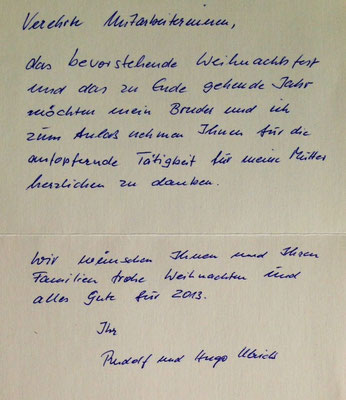 Verehrte Mitarbeiterinnen,
das bevorstehende Weihnachtsfest
und das zu Ende gehende Jahr
möchten mein Bruder und ich
zum Anlaß nehmen Ihnen für die
aufopfernde Tätigkeit für meine Mutter
herzlichen zu danken.
Wir wünschen Ihnen und Ihren
Familien frohe Weihnachten und
alles Gute für 2013.
Ihr
Rudolf und Hugo